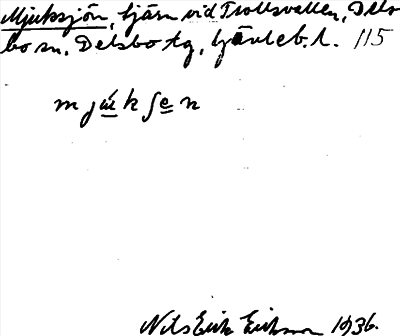 Mjuksjön, tjärn vid Trollsvallen, Dels-
bo sn, Delsbo tg, Gävleb. l. 115
m j ú̲ k ʃ e̲ n
Nils Erik Eriksson 1936.